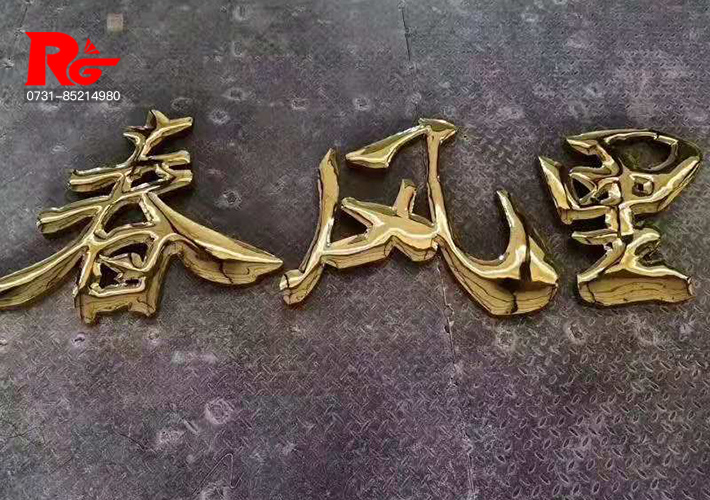 RG
0731-85214980
春风里